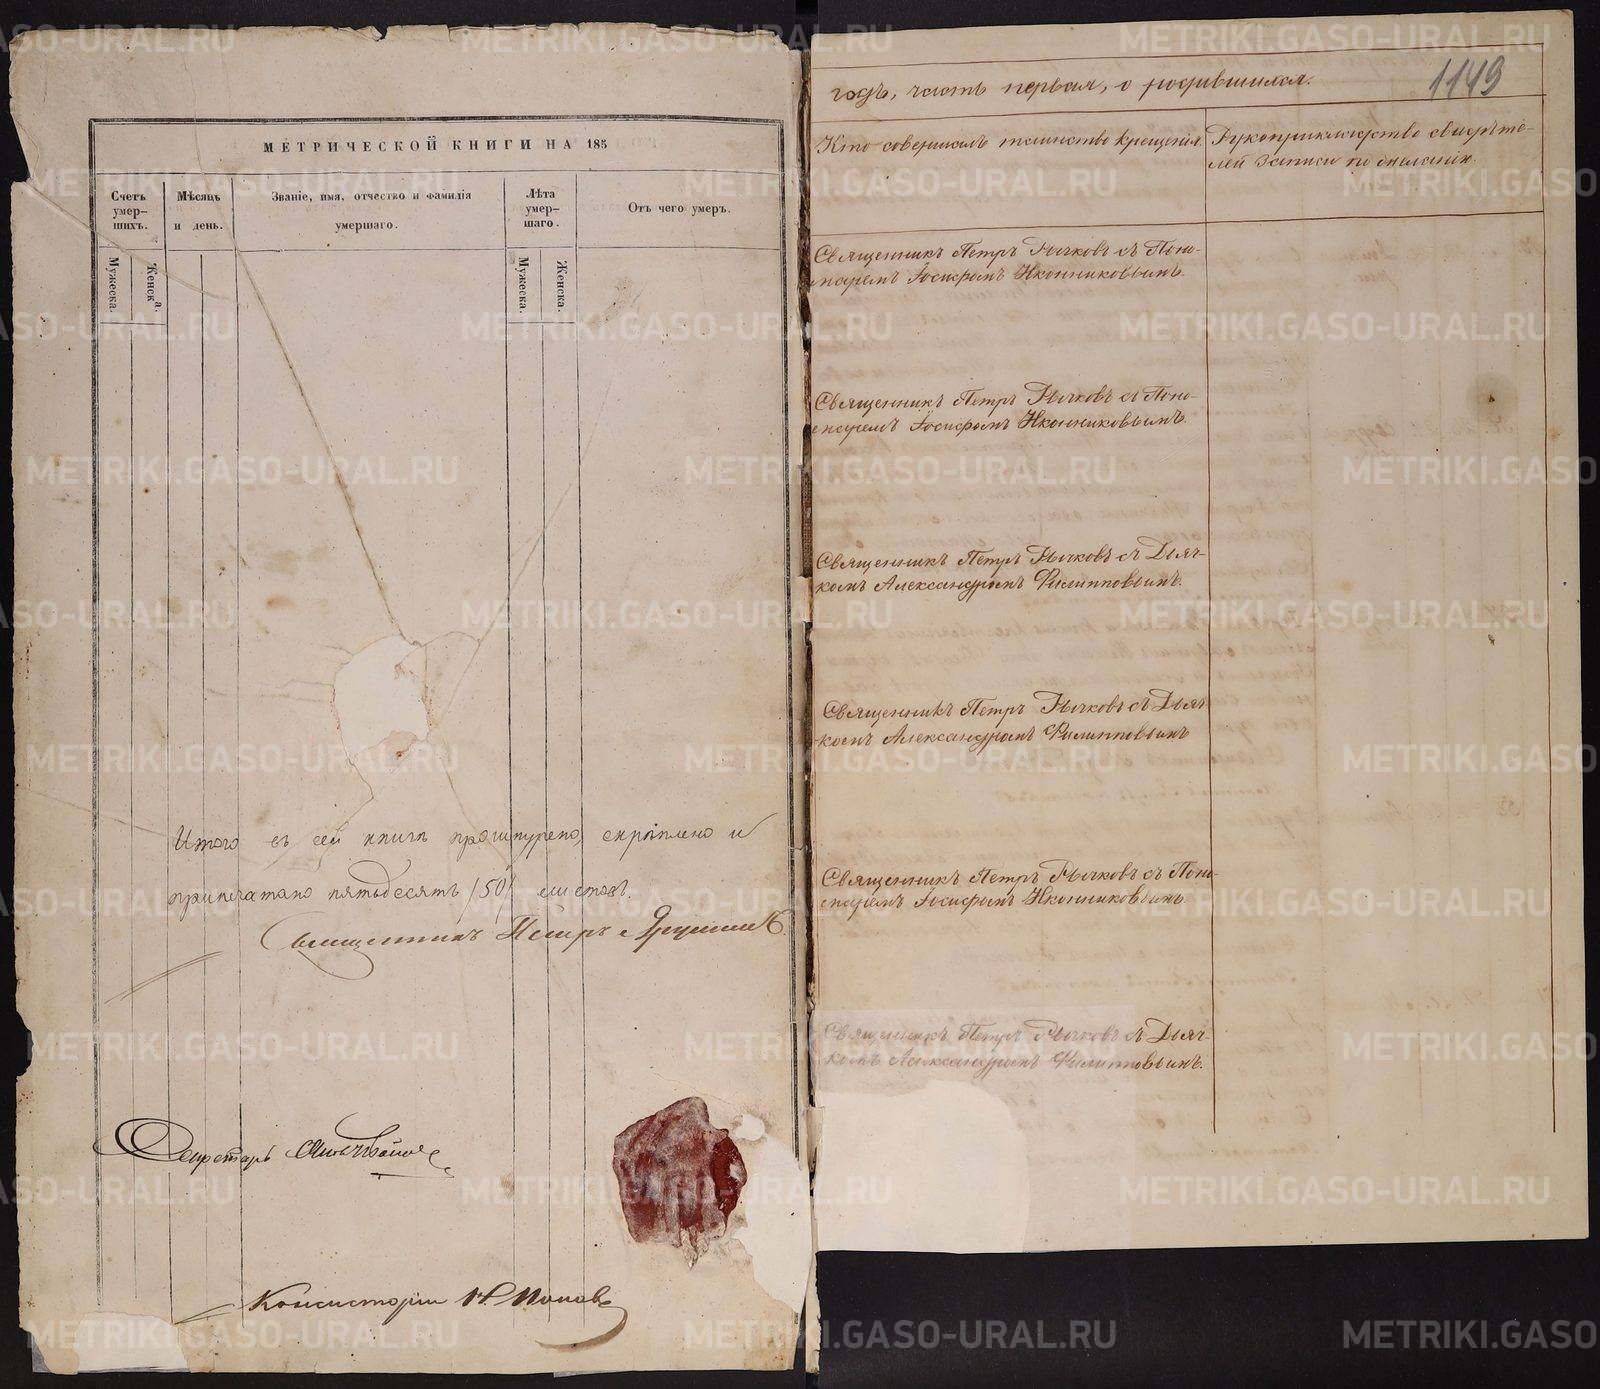 МЕТРИЧЕСКОЙ КНИГИ НА 185
Счетъ умер-
шихъ.
Мѣсяцъ
и день.
Званіе, имя, отчество и фамилія
умершаго.
Лѣта
умер-
шаго.
Отъ чего умеръ.
Мужеска.
Женска.
Мужеска.
Женска.
Итого въ сей книгѣ прошнурено, скрѣплено и
припечатано пятьдесятъ /50/ листовъ.
Священникъ Петръ
Секретарь
Консисторіи Н. Поповъ
годъ, часть первая, о родившихся.
1149
Кто совершалъ таинство крещенія.
Рукоприкладство свидѣте-
лей записи по желанію.
Священникъ Петръ Рычковъ съ Поно-
маремъ Іосифомъ Иконниковымъ.
Священникъ Петръ Рычковъ съ Поно-
маремъ Іосифомъ Иконниковымъ.
Священникъ Петръ Рычковъ съ Дьяч-
комъ Александромъ Филипповымъ.
Священникъ Петръ Рычковъ съ Дьяч-
комъ Александромъ Филипповымъ
Священникъ Петръ Рычковъ съ Поно-
маремъ Іосифомъ Иконниковымъ.
Священникъ Петръ Рычковъ съ Дьяч-
комъ Александромъ Филипповымъ.
METRIKI.GASO-URAL.RU